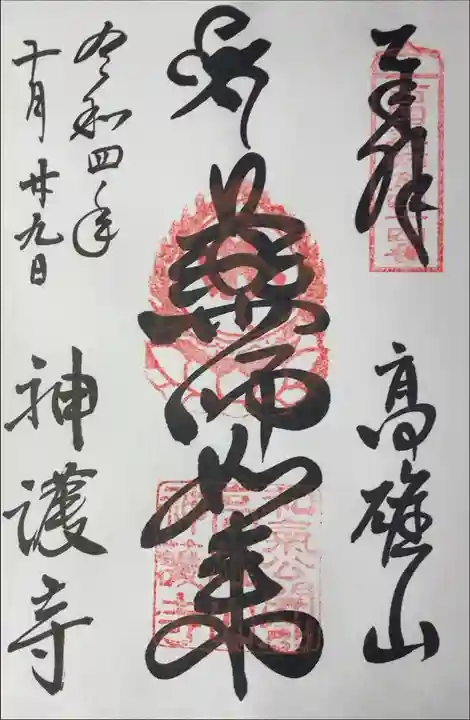 奉拝
高雄山
薬師如来
令和四年
十月廿九日
神護寺